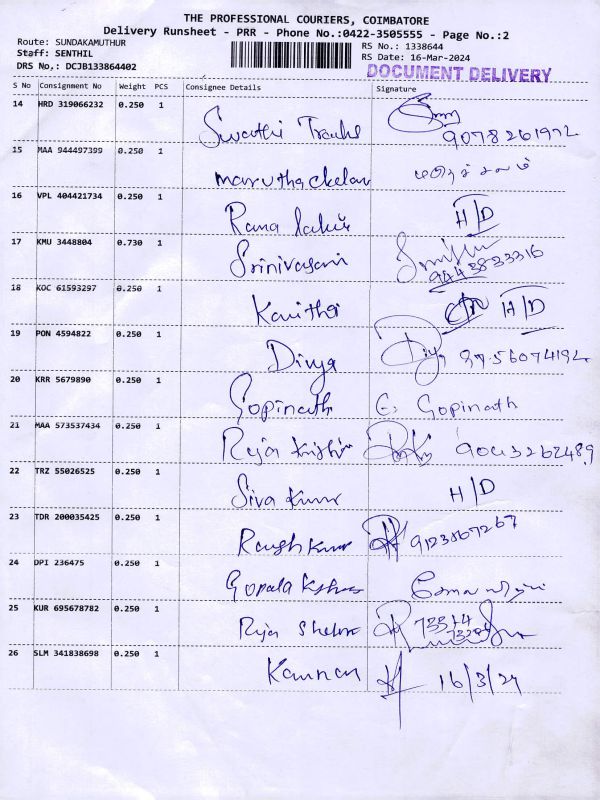 THE PROFESSIONAL COURIERS, COIMBATORE
Delivery Runsheet - PRR - Phone No.:0422-3505555 - Page No.:2
Route: SUNDAKAMUTHUR
Staff: SENTHIL
DRS No,: DCJB133864402
RS No.: 1338644
RS Date: 16-Mar-2024
DOCUMENT DELIVERY
S No Consignment No Weight PCS Consignee Details Signature
14 HRD 319066232 0.250 1 Swathi 9078261972
15 MAA 944497399 0.250 1
16 VPL 404421734 0.250 1 Rama H/D
17 KMU 3448804 0.730 1 Srinivasan 9443833316
18 KOC 61593297 0.250 1 Kavitha H/D
19 PON 4594822 0.250 1 Divya Divya 97.56074192
20 KRR 5679890 0.250 1 Gopinath G. Gopinath
21 MAA 573537434 0.250 1 Raja 9043262489
22 TRZ 55026525 0.250 1 Siva Kumar H/D
23 TDR 200035425 0.250 1 9123867267
24 DPI 236475 0.250 1 Gopala
25 KUR 695678782 0.250 1 Raja
26 SLM 341838698 0.250 1 Kannan 16/3/24